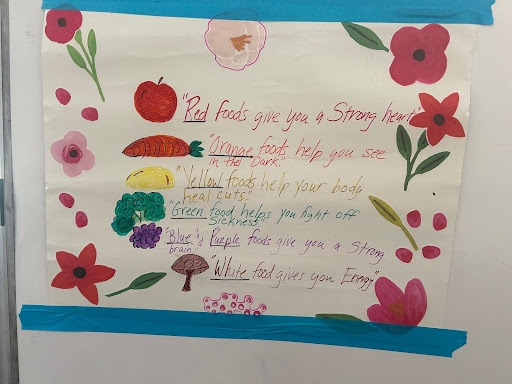 "Red foods give you a Strong heart"
"Orange foods help you see
in the Dark"
"Yellow foods help your body
heal cuts."
"Green food helps you fight off
Sickness"
"Blue & Purple foods give you a Strong
brain"
"White food gives you Energy"